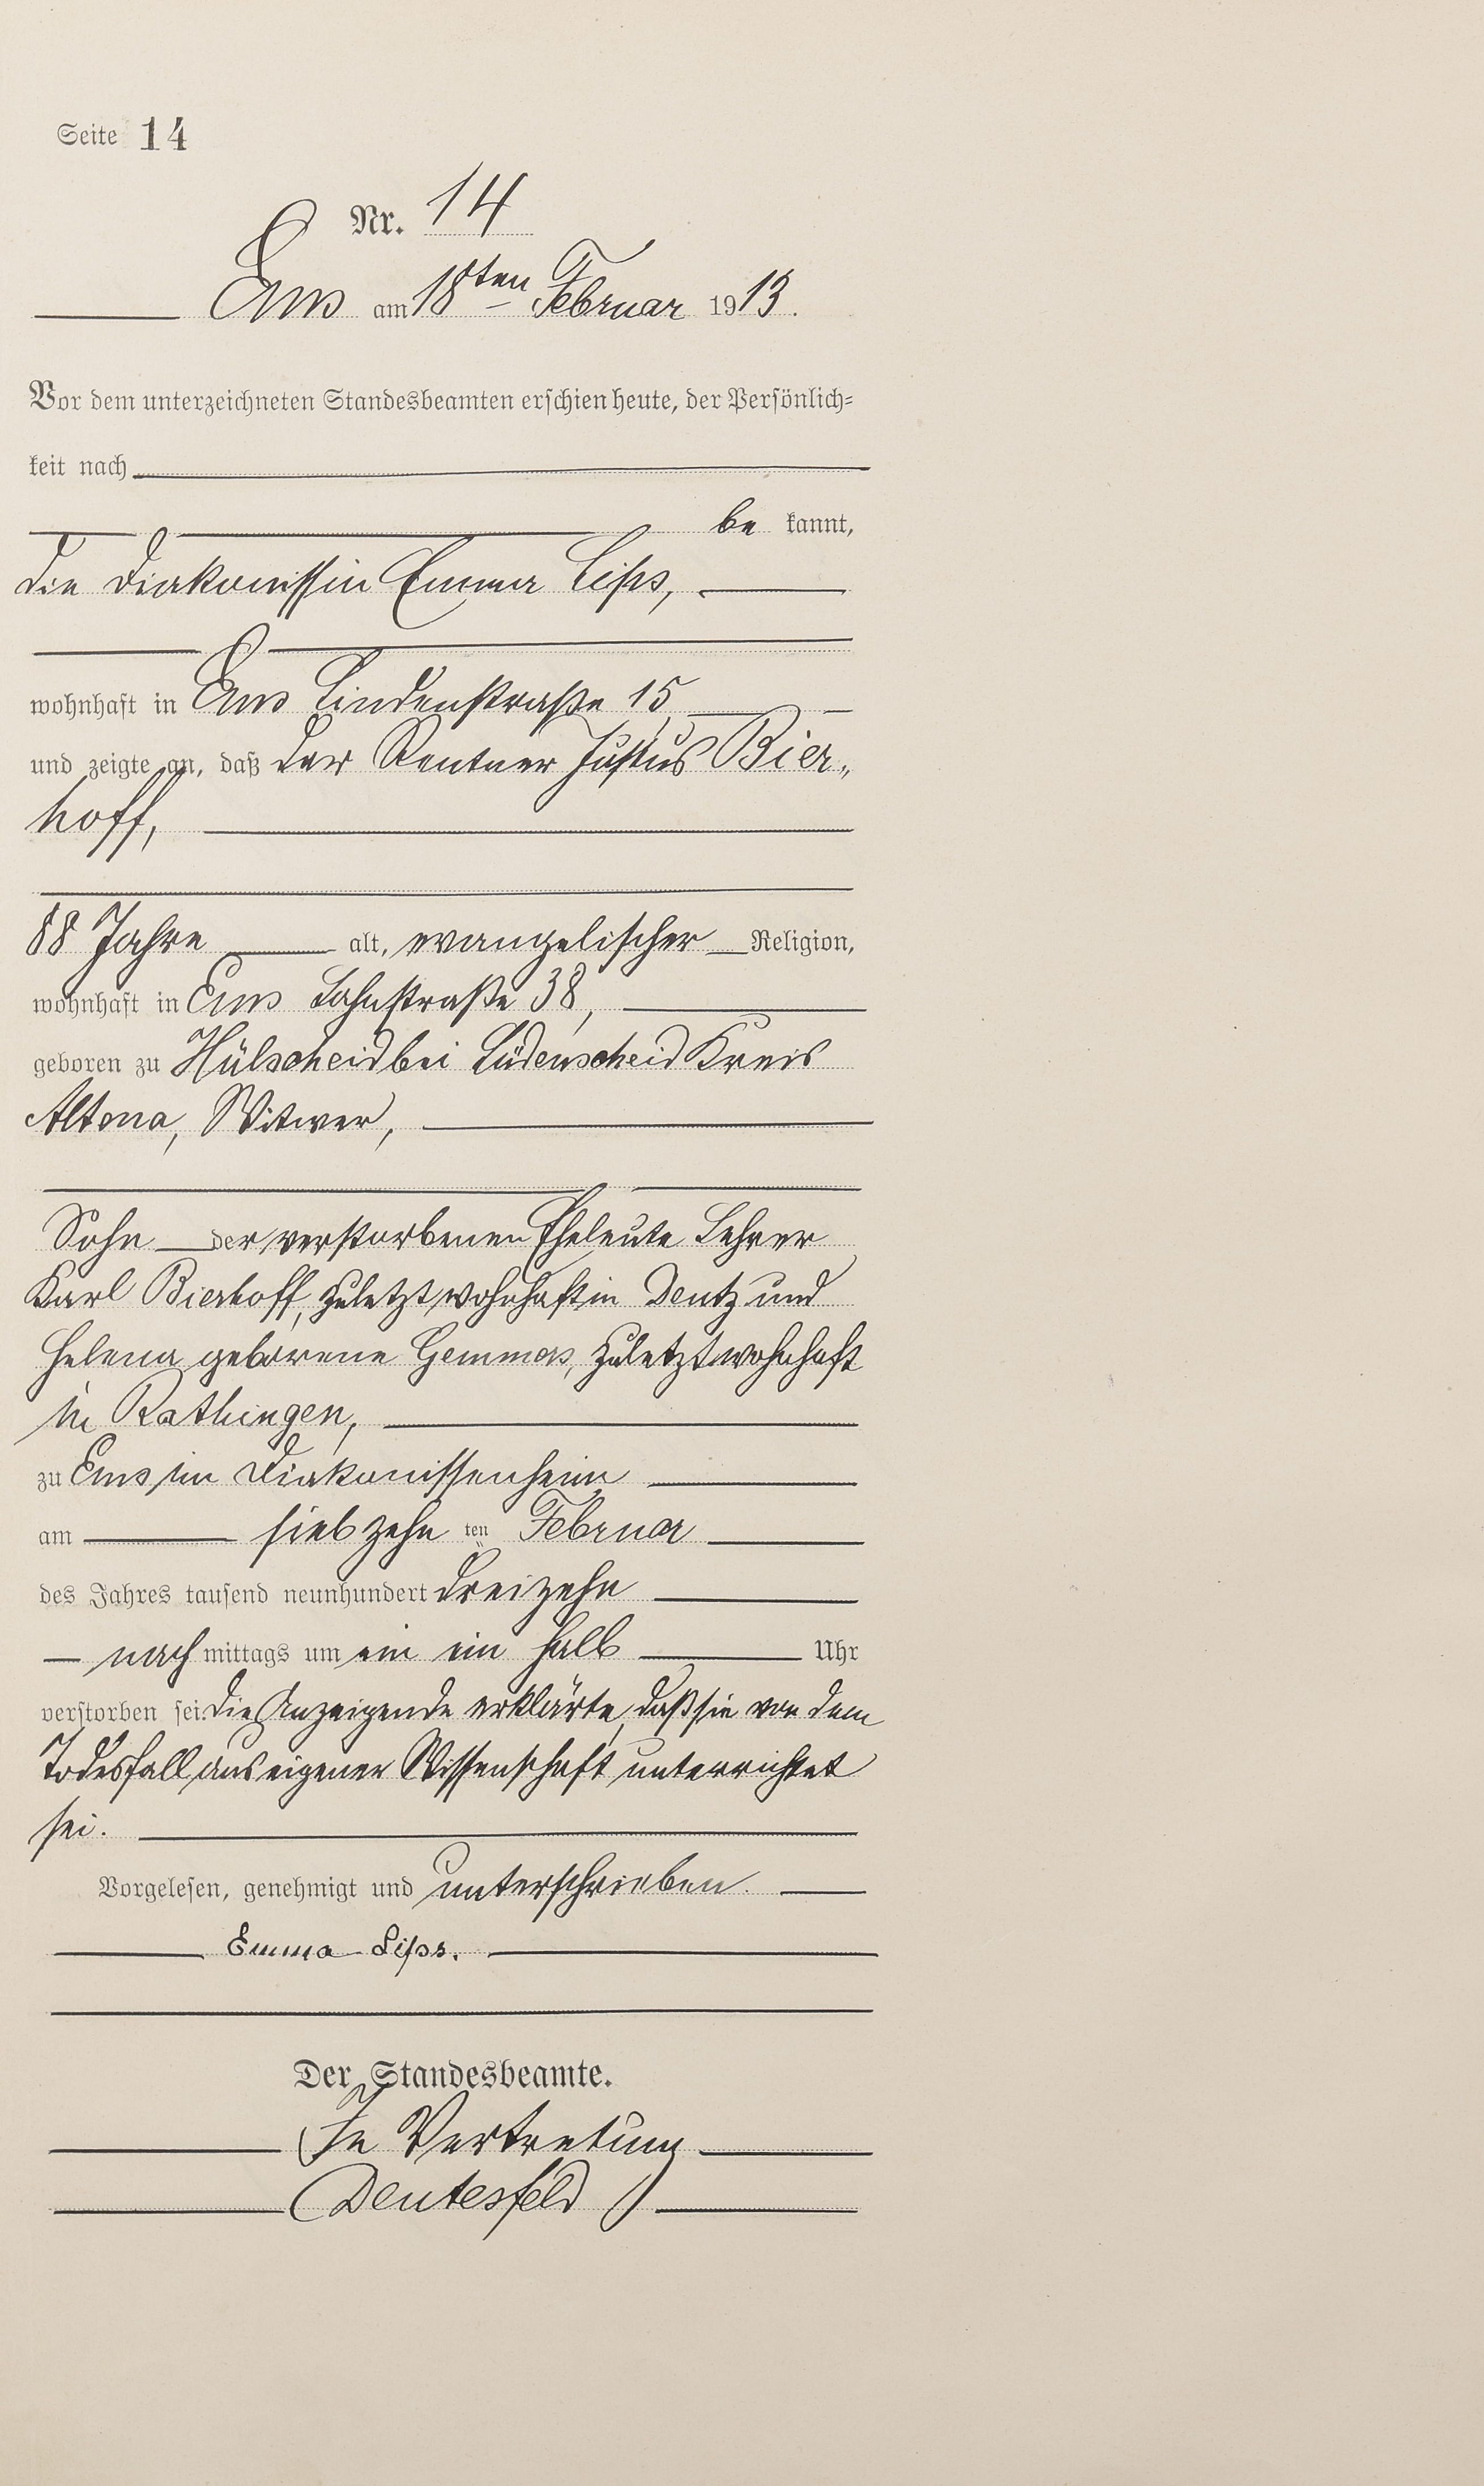 Seite 14
Nr. 14
Ems am 18ten Februar 1913.
Vor dem unterzeichneten Standesbeamten erschien heute, der Persönlich-
keit nach
be kannt,
die Diakonissin Emma Lips,
wohnhaft in Ems Lindenstraße 15,
und zeigte an, daß der Rentner Justus Bier-
hoff,
88 Jahre alt, evangelischer Religion,
wohnhaft in Ems Lahnstraße 38,
geboren zu Hülscheid bei Lüdenscheid Kreis
Altena, Witwer,
Sohn der verstorbenen Eheleute Lehrer
Karl Bierhoff, zuletzt wohnhaft in Deutz und
Helena geborene Gemmas, zuletzt wohnhaft
in Rathingen,
zu Ems im Diakonissenheim
am siebzehn ten Februar
des Jahres tausend neunhundert dreizehn
nach mittags um ein ein halb Uhr
verstorben sei. Die Anzeigende erklärte, daß sie von dem
Todesfall aus eigener Wissenschaft unterrichtet
sei.
Vorgelesen, genehmigt und unterschrieben.
Emma Lips.
Der Standesbeamte.
In Vertretung
Deutesfeld